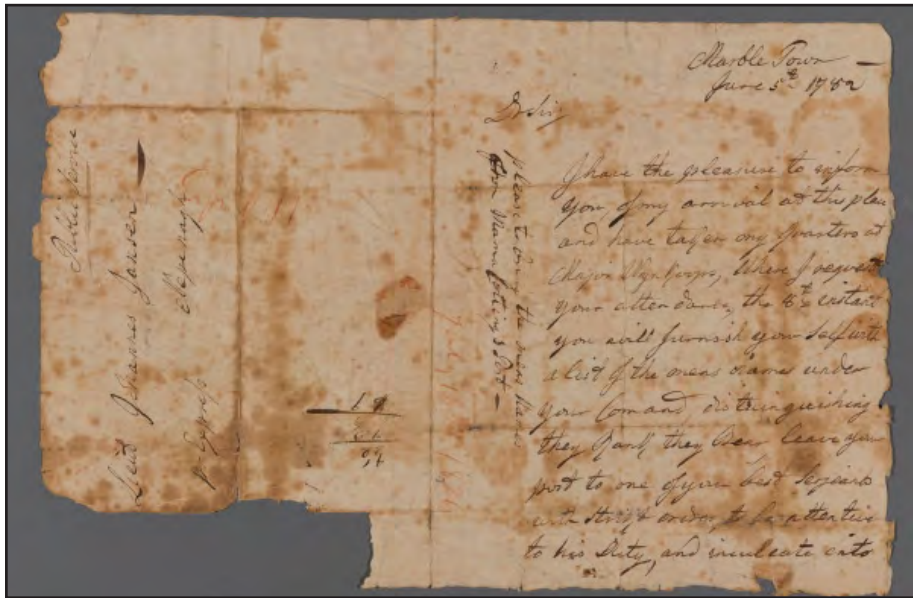 Marble Town
June 5th 1782
Dr Sir
I have the pleasure to inform
you of my arrival at this place
and have taken my Quarters at
Major Wynkoops, Where I request
your attendance, the 8th instant
you will furnish your Self with
a list of the mens names under
your Comand, distinguishing
they Rank they bear leave your
post to one of your best Serjeants
with Strict orders to be attentive
to his Duty, and inculcate into
please to bring the mens names
from Mamacotting Post
Public Service
Lieut Johannes Jansen
pr Express